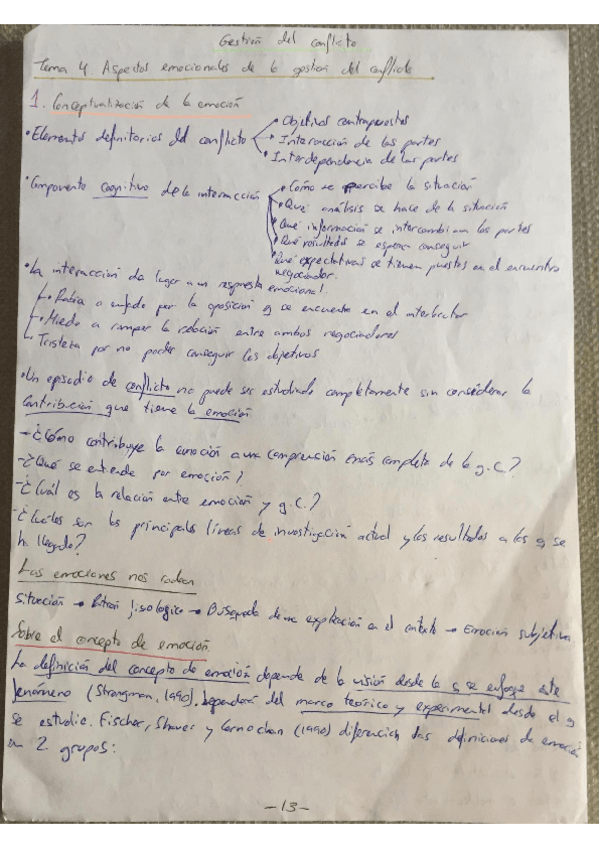 Gestión del conflicto
Tema 4 Aspectos emocionales de la gestión del conflicto
1. Conceptualización de la emoción
• Elementos definitorios del conflicto
• Objetivos contrapuestos
• Interacción de las partes
• Interdependencia de las partes
• Componente cognitivo de la interacción
• Cómo se percibe la situación
• Qué análisis se hace de la situación
• Qué información se intercambian las partes
• Qué resultados se esperan conseguir
• Qué expectativas se tienen puestas en el encuentro
negociador.
• La interacción da lugar a una respuesta
emocional.
Rabia o enfado por la oposición q se encuentra en el interlocutor
Miedo a romper la relación entre ambos negociadores
Tristeza por no poder conseguir los objetivos
• Un episodio de conflicto no puede ser estudiado completamente sin considerar la
contribución que tiene la emoción
- ¿Cómo contribuye la emoción a una comprensión más completa de la g.C.?
- ¿Qué se entiende por emoción?
- ¿Cuál es la relación entre emoción y g.C.?
- ¿Cuáles son las principales líneas de investigación actual y los resultados a los q se
ha llegado?
Las emociones nos rodean
Situación → Patrón fisiológico → Búsqueda de una explicación en el contexto → Emoción subjetiva
Sobre el concepto de emoción
La definición del concepto de emoción depende de la visión desde la q se enfoque este
fenómeno (Strongman, 1990). Dependerá del marco teórico y experimental desde el q
se estudie. Fischer, Shaver y Carnochan (1990) diferencian las definiciones de emoción
en 2 grupos:
-13-